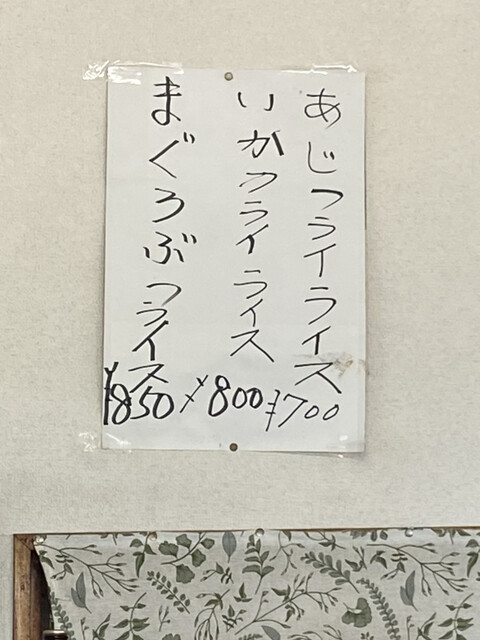 あじフライライス
¥700
いかフライライス
¥800
まぐろぶつライス
¥850